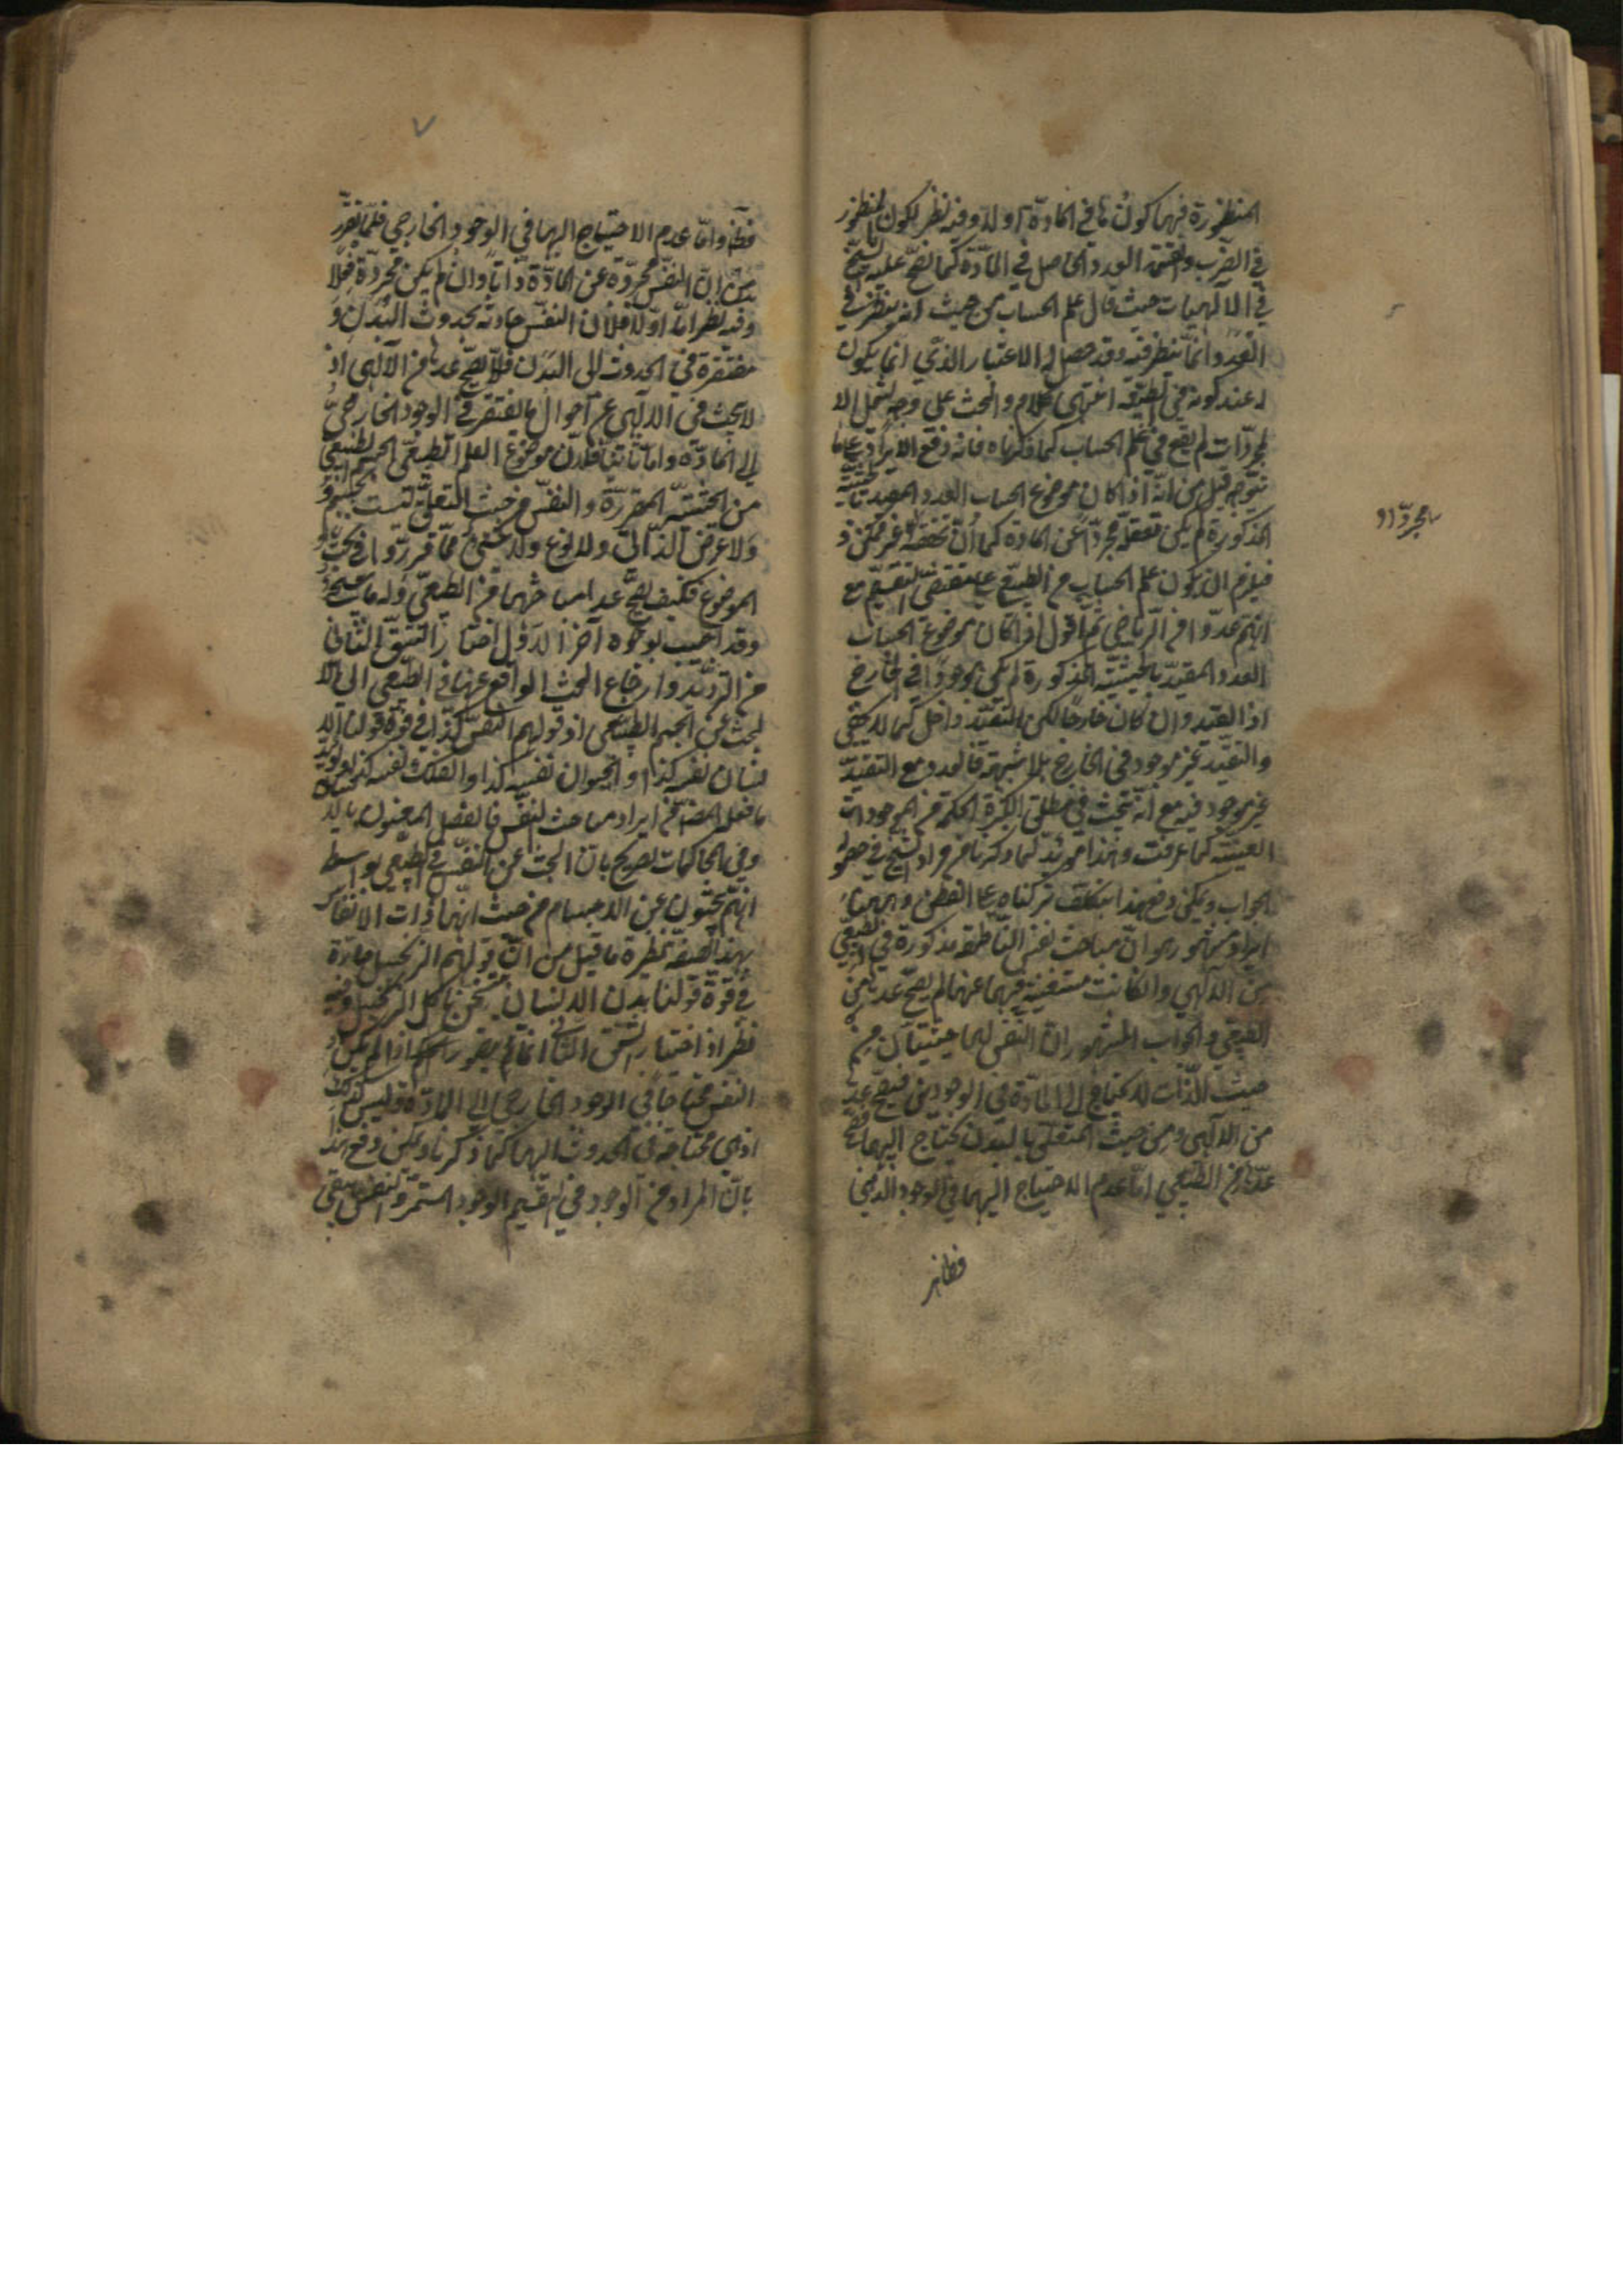 المنظورة فيهما كونها في المادة اولا وفيه نظر لكون المنظور
في الضرب والقسمة العدد الحاصل في المادة كما نص عليه الشيخ
في الآلهيات حيث قال علم الحساب من حيث انه ينظر في
العدد انما ينظر فيه وقد حصل له الاعتبار الذي انما يكون
له عند كونه في الطبيعة انتهى كلامه والبحث على وجه يشمل الا
لمجردات لم يقع في علم الحساب كما ذكرناه فانه دفع الايراد
يتوجه قيل من انه اذا كان موضوع الحساب العدد المقيد بالحيثية
المذكورة لم يكن تعقله مجردا عن المادة كما ان تحققه غير ممكن
فيلزم ان يكون علم الحساب من الطبيعي على مقتضى التقسيم مع
انهم عدوا من الرياضي ثم اقول اذا كان موضوع الحساب
العدد المقيد بالحيثية المذكورة لم يكن موجودا في الخارج
اذ القيد وان كان خارجا لكن التقييد داخل كما لا يخفى
والتقييد غير موجود في الخارج بلا شبهة فالعدد مع التقييد
غير موجود فيه مع انه يبحث في مطلق الحكمة عن الموجودات
العينية كما عرفت وهذا مؤيد لما ذكرنا من مراد الشيخ في
الجواب ويمكن دفع هذا بتكلف تركناه على الفطن وههنا
ايراد مشهور وهو ان مباحث نفس الناطقة مذكورة في الطبيعي
من الآلهي وان كانت مستغنية فيهما عنها لم يصح عدها من
الطبيعي والجواب المشهور ان النفس لها حيثيتان من
حيث الذات لا يحتاج الى المادة في الوجودين فيصح عدها
من الآلهي ومن حيث التعلق بالبدن يحتاج اليها فيصح
عدها من الطبيعي اما عدم الاحتياج اليها في الوجود الذهني
فظاهر
مجردا و
٧
فظاهر واما عدم الاحتياج اليها في الوجود الخارجي فلما تقرر
من ان النفس مجردة عن المادة ذاتا وان لم يكن مجردة فعلا
وفيه نظر اما اولا فلان النفس حادثة بحدوث البدن و
مفتقرة في الحدوث الى البدن فلا يصح عدها من الآلهي اذ
لا يبحث في الآلهي عن احوال ما يفتقر في الوجود الخارجي
الى المادة واما ثانيا فلان موضوع العلم الطبيعي الجسم الطبيعي
من الحيثية المقررة والنفس من حيث التعلق ليست بجسم
ولا عرض الذاتي ولا نوع ولا شيء مما قرروا في بحث
الموضوع فكيف يصح عد مباحثها من الطبيعي
وقد اجيب بوجوه آخر الاول اختيار الشق الثاني
من الترديد وارجاع البحث الواقع عنها في الطبيعي الى
البحث عن الجسم الطبيعي اذ قولهم النفس كذا في قوة قولنا الا
نسان نفسه كذا والحيوان نفسه كذا والفلك نفسه كذا
ما فعل المصنف من ايراد مباحث النفس في الفصل المعنون بالا
وفي المحاكمات تصريح بان البحث عن النفس في الطبيعي بواسطة
انهم يبحثون عن الاجسام من حيث انها ذات الانفس
بهذه الصفة نظيره ما قيل من ان قولهم الزنجبيل حارة
في قوة قولنا بدن الانسان يتسخن باكل الزنجبيل وفيه
نظر اذ اختيار الشق الثاني انما يتصور اذا لم يكن
النفس محتاجا في الوجود الخارجي الى المادة وليس كذلك
اذ هي محتاجة في الحدوث اليها كما ذكرنا ويمكن دفع هذا
بان المراد من الوجود في التقسيم الوجود المستمر والنفس يبقى